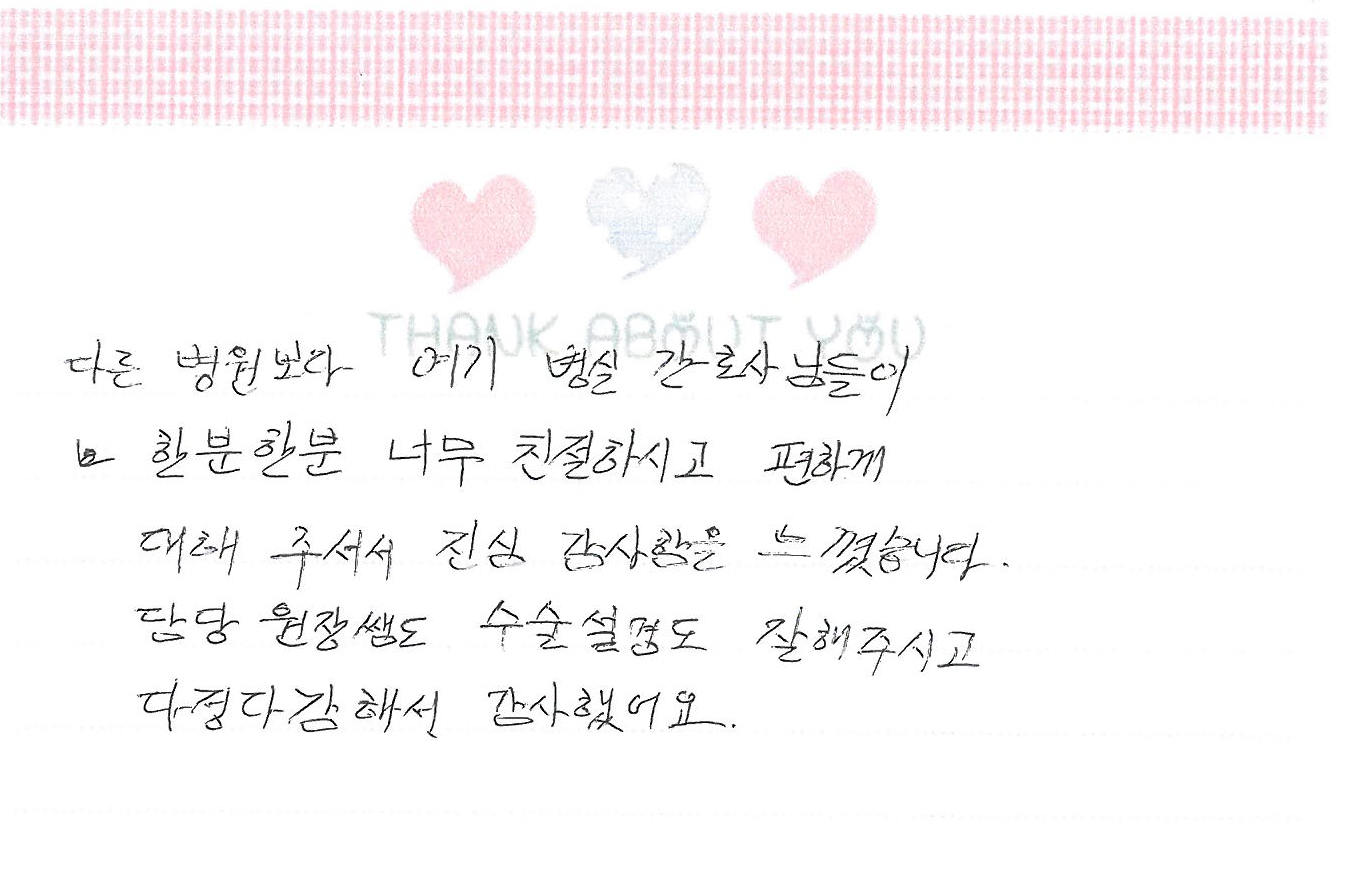 THANK ABOUT YOU
다른 병원보다 여기 병실 간호사님들이
한분한분 너무 친절하시고 편하게
대해 주셔서 진심 감사함을 느꼈습니다.
담당 원장쌤도 수술설명도 잘해주시고
다정다감해서 감사했어요.